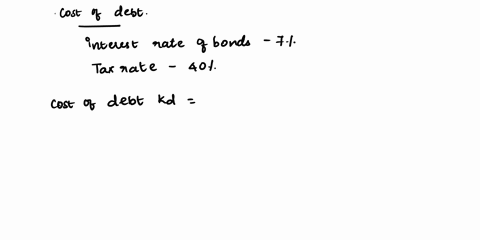 Cost of debt.
interest rate of bonds - 7%
Tax rate - 40%
Cost of debt kd =